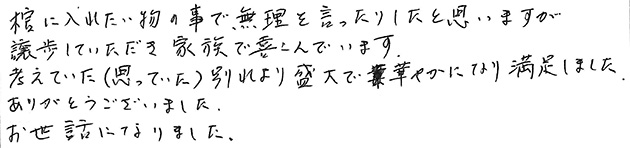 棺に入れたい物の事で無理を言ったりしたと思いますが
譲歩していただき家族で喜こんでいます.
考えていた(思っていた)別れより盛大で華やかになり満足しました.
ありがとうございました.
お世話になりました.